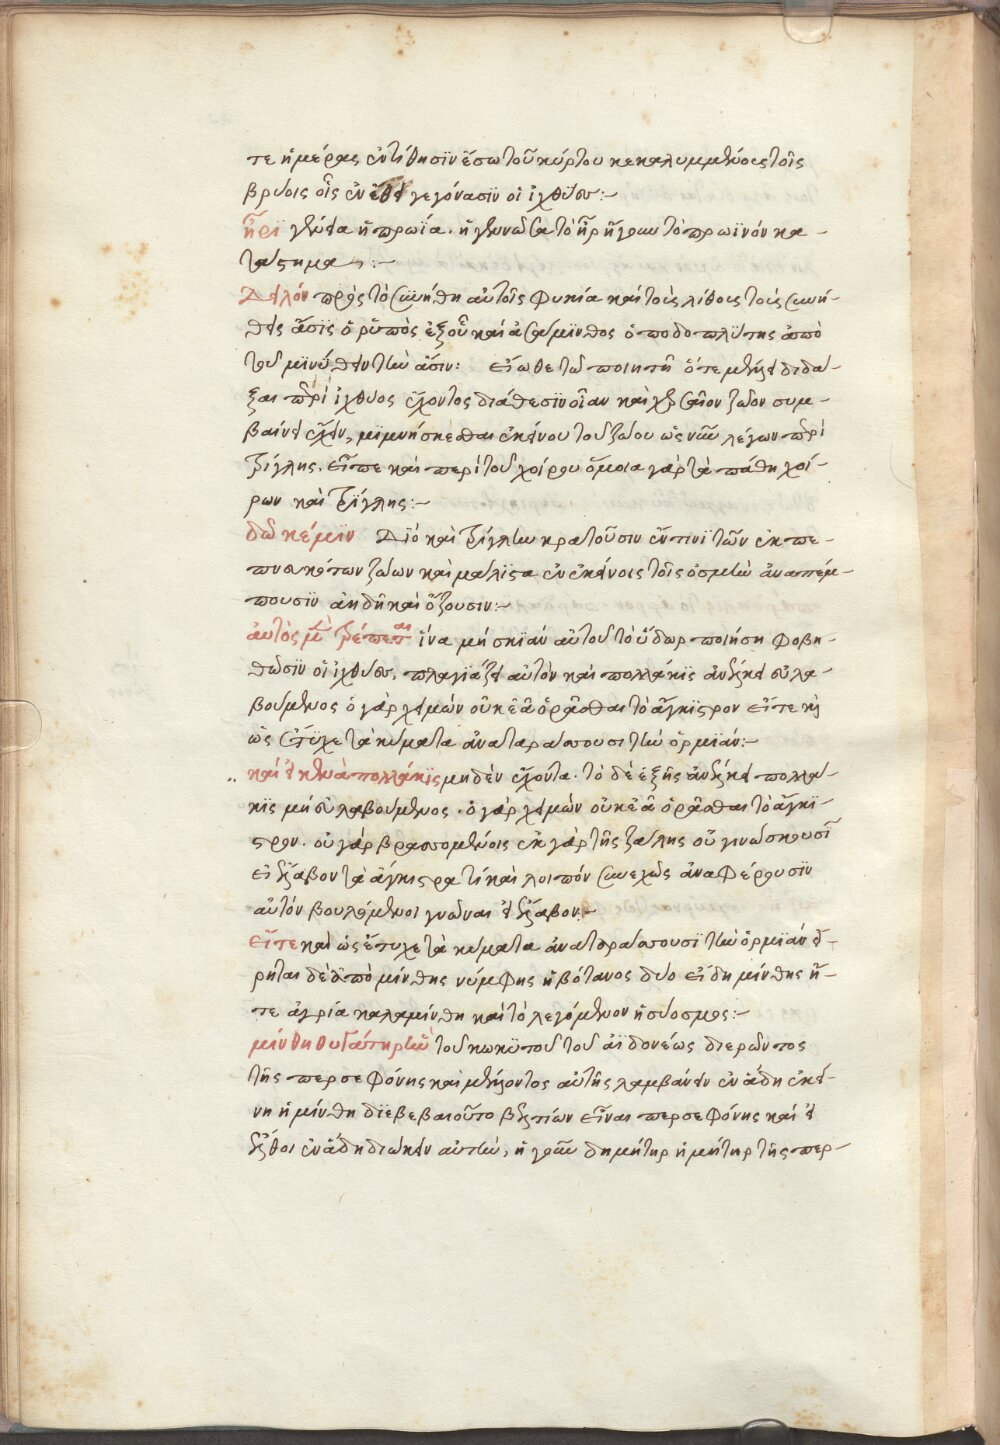 τε ἡμέρας ἐντίθησιν ἔσω τοῦ κύρτου κεκαλυμμένους τοῖς
βρύοις οἷς ἐν ἔθει γεγόνασιν οἱ ἰχθύες:~
ἦρι γενύσα ἡ πρωΐα. ἢ γενικῶς ἀπὸ τὸ ἦρ ἤγουν τὸ πρωϊνὸν κα-
τάστημα:~
Δειλόν πρὸς τὸ συνήθη αὐτοῖς φυκία καὶ τοὺς λίθους τοὺς συνή-
θεις ἄσις ὁ ῥύπος ἐξ οὗ καὶ ἀσάμινθος ὁ ποδοπλύτης ἀπὸ
τοῦ μινύθειν τὴν ἄσιν: εἴωθε τῷ ποιητῇ ὅτε μέλλει διδά-
ξαι περὶ ἰχθύος ἔχοντος διάθεσιν οἵαν καὶ χερσαῖον ζῶον συμ-
βαίνει ἔχειν, μιμνήσκεσθαι ἐκείνου τοῦ ζώου ὡς νῦν λέγων περὶ
τρίγλης. εἶπε καὶ περὶ τοῦ χοίρου ὅμοια γὰρ τὰ πάθη χοί-
ρων καὶ τρίγλης:~
δῶκέ μιν Διό καὶ τρίγλην κρατοῦσιν ἔν τινι τῶν ἐκπε-
πνευκότων ζώων καὶ μάλιστα ἐν ἐκείνοις τοῖς ὀσμὴν ἀναπέμ-
πουσιν ἀηδῆ καὶ ὄζουσιν:~
αὐτὸς μὲν τρέπεται ἵνα μὴ σκιὰν αὐτοῦ τὸ ὕδωρ ποιήσῃ φοβη-
θῶσιν οἱ ἰχθύες. πλαγιάζει αὐτὸν καὶ πολλάκις ἀνέλκει συλλα-
βούμενος ὁ γὰρ χειμὼν οὐκ ἐᾶ ὁρᾶσθαι τὸ ἄγκιστρον εἴτε καὶ
ὡς ἔτυχε τὰ κύματα ἀναταράσσουσι τὴν ὁρμιάν:~
καί εἰ κενεὰ πολλάκις μηδὲν ἔχοντα. τὸ δὲ ἑξῆς ἀνέλκει πολλά-
κις μὴ συλλαβούμενος. ὁ γὰρ χειμὼν οὐκ ἐᾶ ὁρᾶσθαι τὸ ἄγκι-
στρον. οὐ γὰρ βρασσομένοις ἐκ γὰρ τῆς ζάλης οὐ γινώσκουσι
εἰ ἔλαβον τὰ ἄγκιστρα τί καὶ λοιπὸν συνεχῶς ἀναφέρουσιν
αὐτόν βουλόμενοι γνῶναι εἰ ἔλαβον:~
εἴτε καὶ ὡς ἔτυχε τὰ κύματα ἀναταράσσουσι τὴν ὁρμιάν εἴ-
ρηται δὲ ἀπὸ μίνθης νύμφης ἡ βότανος δύο εἴδη μίνθης ἥ-
τε ἀγρία καλαμίνθη καὶ τὸ λεγόμενον ἡδύοσμος:~
μίνθη θυγάτηρ ἦν τοῦ κωκυτοῦ τοῦ ἀϊδονέως διερῶντος
τῆς περσεφόνης καὶ μέλλοντος αὐτῆς λαμβάνειν ἐν ἅδῃ ἐκεί-
νη ἡ μίνθη διεβεβαιοῦτο βελτίων εἶναι περσεφόνης καὶ εἰ
ἔλθοι ἐν ἅδῃ διώκειν αὐτήν, ἡ γοῦν δημήτηρ ἡ μήτηρ τῆς περ-